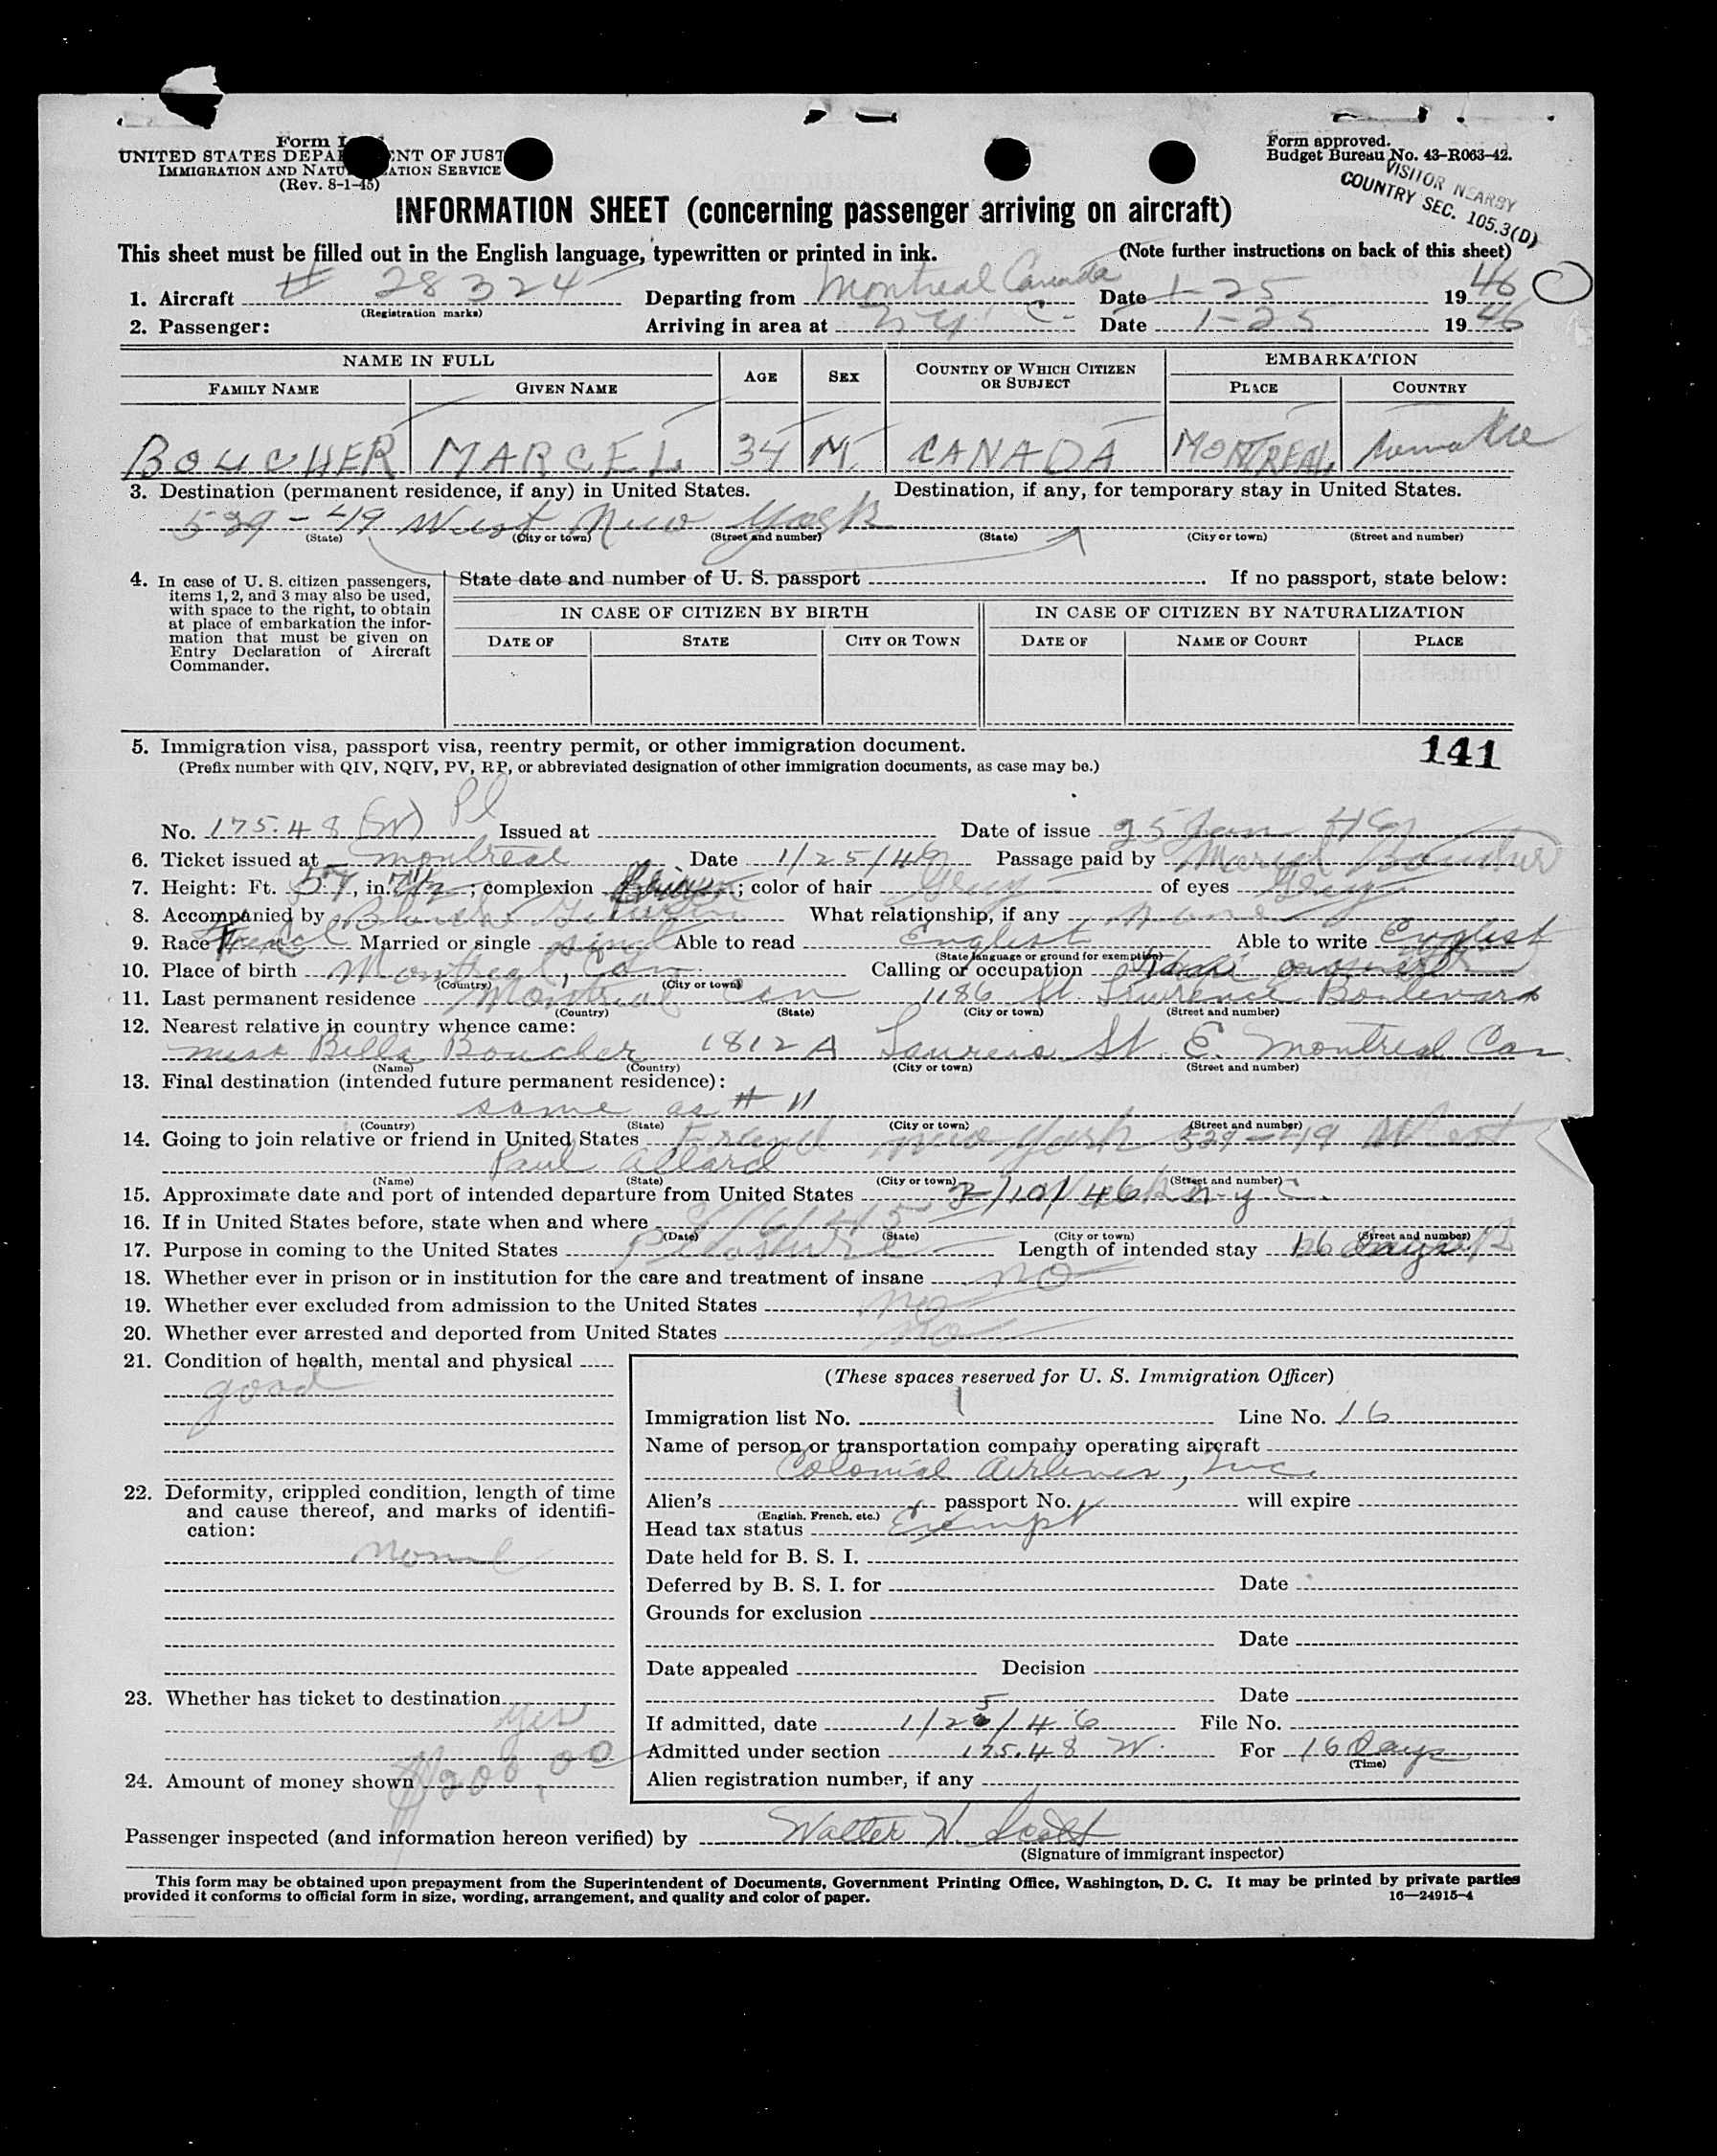 Form I
UNITED STATES DEPA ENT OF JUST
IMMIGRATION AND NATU ATION SERVICE
(Rev. 8-1-45)
Form approved.
Budget Bureau No. 43-R063-42.
VISITOR NEARBY
COUNTRY SEC. 105.3(D)
INFORMATION SHEET (concerning passenger arriving on aircraft)
This sheet must be filled out in the English language, typewritten or printed in ink. (Note further instructions on back of this sheet)
1. Aircraft # 28324 Departing from Montreal Canada Date 1-25 1946
(Registration marks)
2. Passenger: Arriving in area at N.Y. C. Date 1-25 1946
NAME IN FULL AGE SEX COUNTRY OF WHICH CITIZEN OR SUBJECT EMBARKATION
FAMILY NAME GIVEN NAME PLACE COUNTRY
BOUCHER MARCEL 34 M. CANADA MONTREAL
3. Destination (permanent residence, if any) in United States. Destination, if any, for temporary stay in United States.
539-49 West New York
(State) (City or town) (Street and number) (State) (City or town) (Street and number)
4. In case of U. S. citizen passengers, items 1, 2, and 3 may also be used, with space to the right, to obtain at place of embarkation the information that must be given on Entry Declaration of Aircraft Commander.
State date and number of U. S. passport . If no passport, state below:
IN CASE OF CITIZEN BY BIRTH IN CASE OF CITIZEN BY NATURALIZATION
DATE OF STATE CITY OR TOWN DATE OF NAME OF COURT PLACE
5. Immigration visa, passport visa, reentry permit, or other immigration document. 141
(Prefix number with QIV, NQIV, PV, RP, or abbreviated designation of other immigration documents, as case may be.)
No. 175.48 (W) Pl Issued at Date of issue 25 Jan 46
6. Ticket issued at montreal Date 1/25/46 Passage paid by Marcel Boucher
7. Height: Ft. 5, in. 7½; complexion ; color of hair Grey of eyes Grey
8. Accompanied by What relationship, if any none
9. Race French Married or single single Able to read English Able to write English
(State language or ground for exemption)
10. Place of birth Montreal, Can Calling or occupation
(Country) (City or town)
11. Last permanent residence Montreal Can 1186 St. Lawrence Boulevard
(Country) (State) (City or town) (Street and number)
12. Nearest relative in country whence came:
miss Bella Boucher 1812 A St. E. Montreal Can.
(Name) (Country) (City or town) (Street and number)
13. Final destination (intended future permanent residence):
same as # 11
(Country) (State) (City or town) (Street and number)
14. Going to join relative or friend in United States Friend New York 539-49 West
Paul Allard
(Name) (State) (City or town) (Street and number)
15. Approximate date and port of intended departure from United States 2/10/46 N-Y C.
16. If in United States before, state when and where
(Date) (State) (City or town) (Street and number)
17. Purpose in coming to the United States Pleasure Length of intended stay 16 days
18. Whether ever in prison or in institution for the care and treatment of insane no
19. Whether ever excluded from admission to the United States no
20. Whether ever arrested and deported from United States no
21. Condition of health, mental and physical
good
22. Deformity, crippled condition, length of time and cause thereof, and marks of identification:
None
23. Whether has ticket to destination
yes
24. Amount of money shown $200.00
(These spaces reserved for U. S. Immigration Officer)
Immigration list No. 1 Line No. 16
Name of person or transportation company operating aircraft
Colonial Airlines, Inc.
Alien's passport No. will expire
(English, French, etc.)
Head tax status Exempt
Date held for B. S. I.
Deferred by B. S. I. for Date
Grounds for exclusion
Date
Date appealed Decision
Date
If admitted, date 1/25/46 File No.
Admitted under section 175.48 W. For 16 Days
(Time)
Alien registration number, if any
Passenger inspected (and information hereon verified) by Walter H. Scott
(Signature of immigrant inspector)
This form may be obtained upon prepayment from the Superintendent of Documents, Government Printing Office, Washington, D. C. It may be printed by private parties
provided it conforms to official form in size, wording, arrangement, and quality and color of paper. 16—24915-4